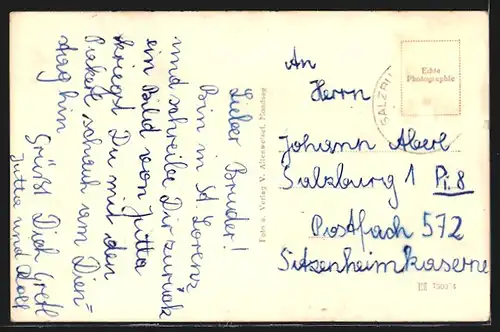 Lieber Bruder!
Bin in St. Lorenz
und schreibe Dir zurück
ein Bild von Jutta
kriegst Du mit den
Paket schauh am Dien=
stag hin
Grüßt Dich Gretl
Jutta und
Foto u. Verlag V. Allerwetsel, Mondsee
An
Herrn
Johann Aberl
Salzburg 1 Pi.8
Postfach 572
Sitzenheimkaserne
Echte
Photographie
SALZBU